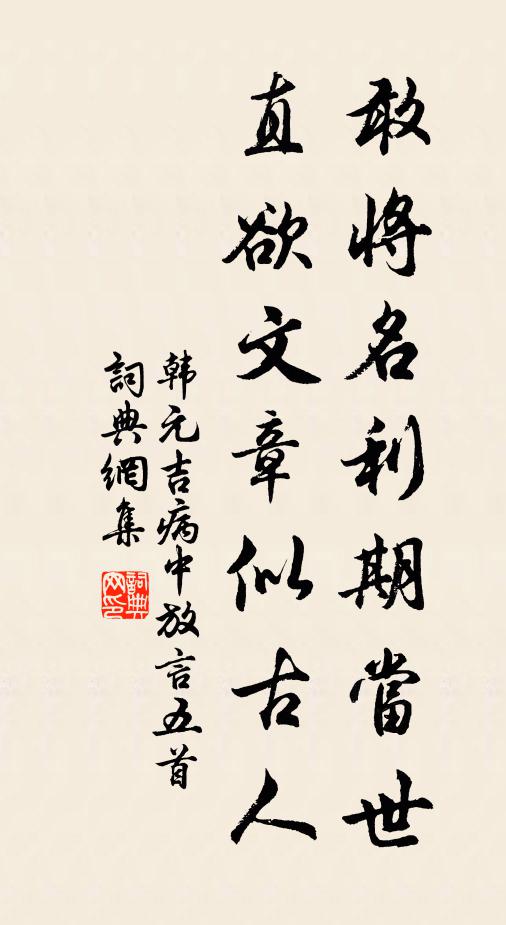 敢將名利期當世
直欲文章似古人
韩元吉病中放言五首
詞典網集
詞典网印